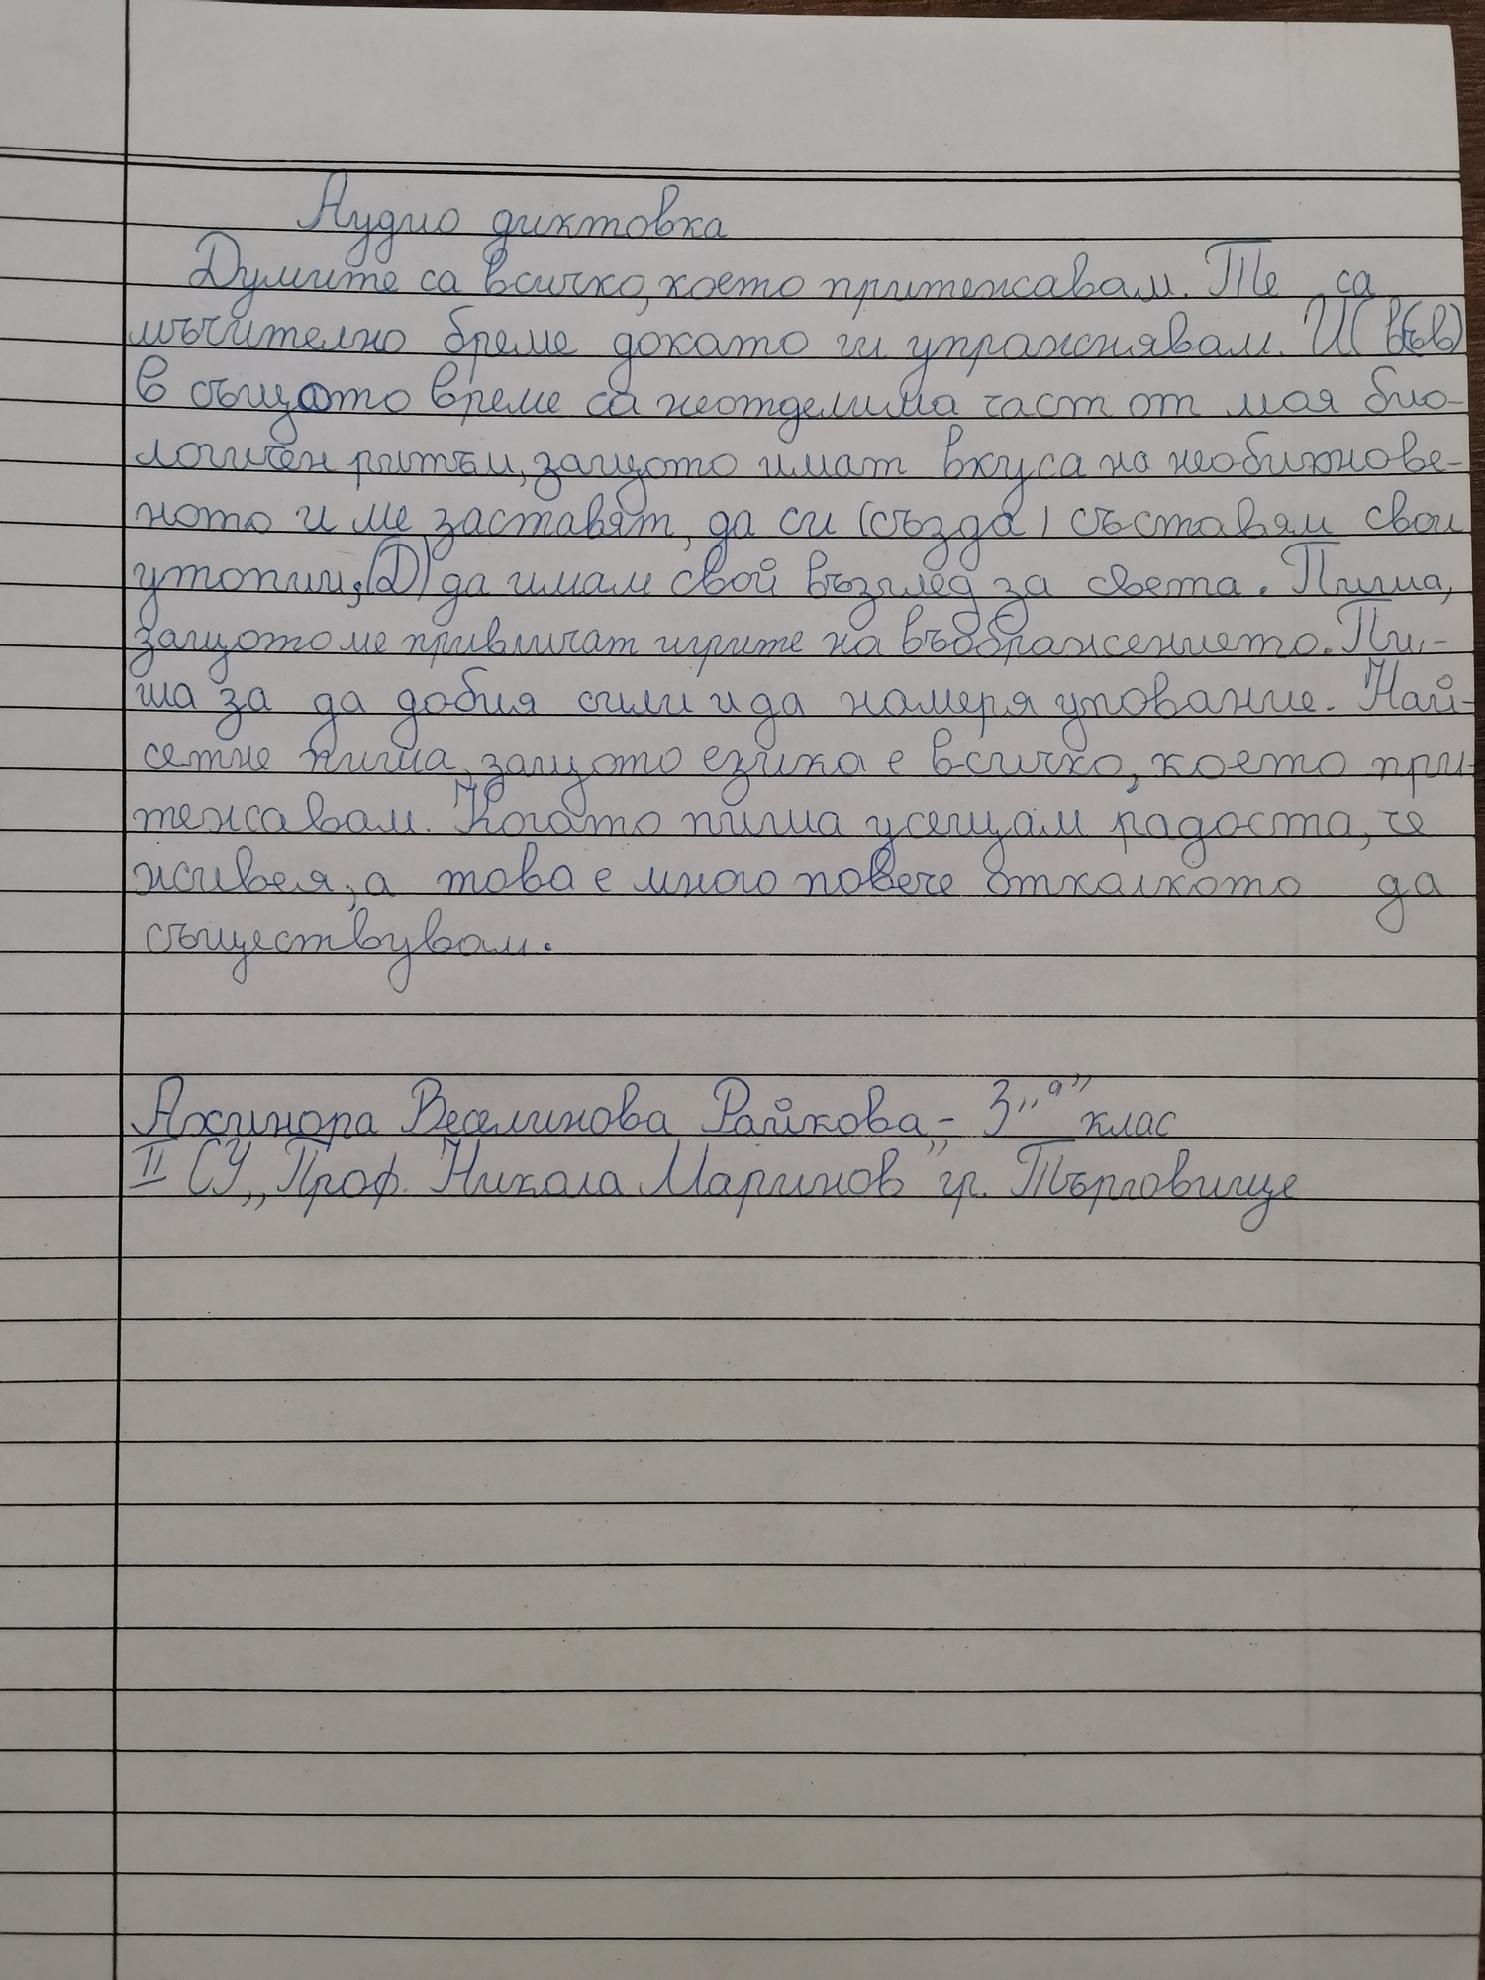 Аудио диктовка
Думите са всичко, което притежавам. Те са
мъчително бреме докато ги упражнявам. И (във)
в същото време са неотделима част от моя био-
логичен ритъм, защото имат вкуса на необикнове-
ното и ме заставят, да си (създа) съставям свои
утопии, (Д) да имам свой възглед за света. Пиша,
защото ме привличат игрите на въображението. Пи-
ша за да добия сили и да намеря упование. Най-
сетне пиша, защото езика е всичко, което при-
тежавам. Когато пиша усещам радоста, че
живея, а това е много повече отколкото да
съществувам.
Ахинора Веселинова Райкова - 3 „а" клас
II СУ „Проф. Никола Маринов" гр. Търговище